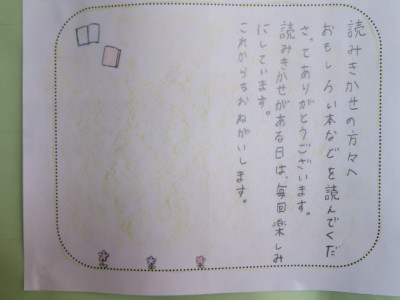 読みきかせの方々へ
おもしろい本などを読んでくだ
さってありがとうございます。
読みきかせがある日は、毎回楽しみ
にしています。
これからもおねがいします。